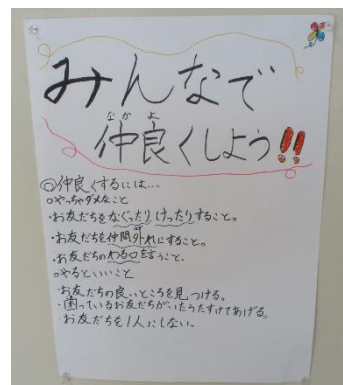 みんなで
仲良くしよう!!
なかよ
◎仲良くするには…
○やっちゃダメなこと
・お友だちをなぐったりけったりすること。
・お友だちを仲間外れにすること。
・お友だちのわる口を言うこと。
○やるといいこと
・お友だちの良いところを見つける。
・困っているお友だちがいたらたすけてあげる。
・お友だちを1人にしない。